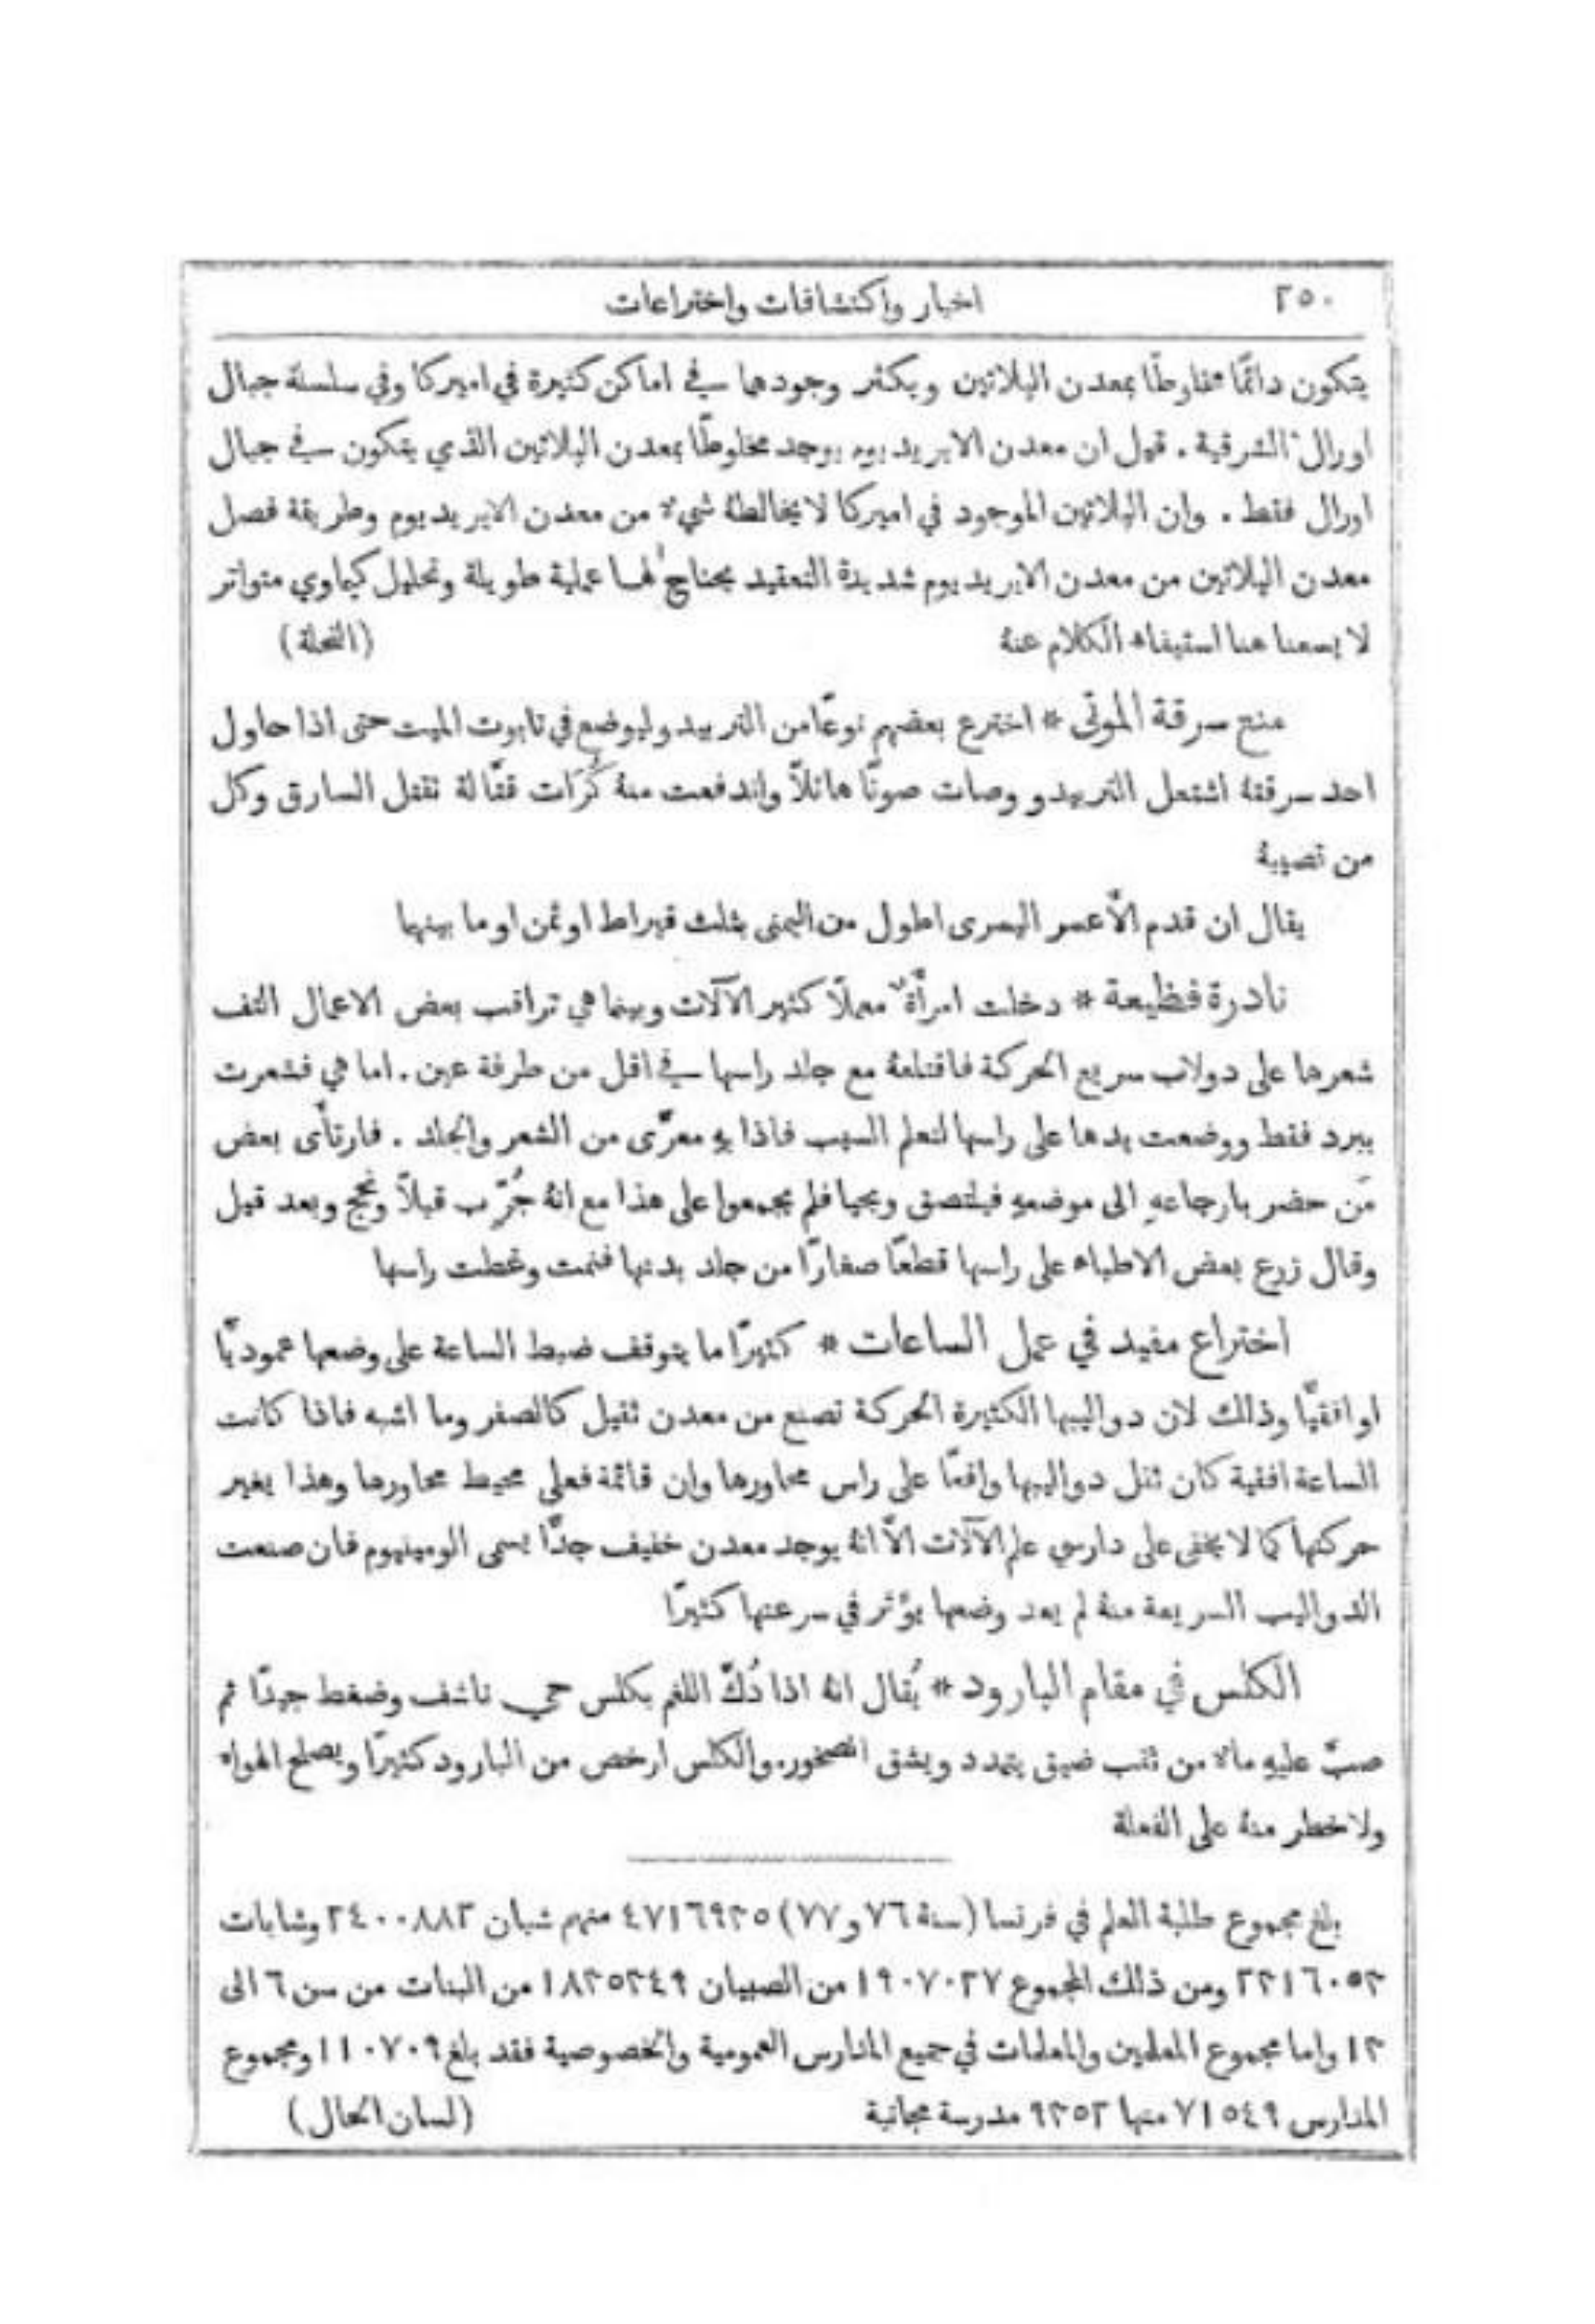 ٢٥٠
اخبار واكتشافات واختراعات
يتكون دائمًا مخلوطًا بمعدن البلاتين ويكثر وجودها في اماكن كثيرة في اميركا وفي سلسلة جبال
اورال الشرقية . قيل ان معدن الايريديوم يوجد مخلوطًا بمعدن البلاتين الذي يتكون في جبال
اورال فقط . وان البلاتين الموجود في اميركا لا يخالطهُ شيء من معدن الايريديوم وطريقة فصل
معدن البلاتين من معدن الايريديوم شديدة التعقيد يحتاج لها عملية طويلة وتحليل كيماوي متواتر
لا يسعنا هنا استيفاء الكلام عنهُ (النحلة)
منع سرقة الموتى * اخترع بعضهم نوعًا من التربيدو ليوضع في تابوت الميت حتى اذا حاول
احد سرقتهُ اشتعل التربيدو وصات صوتًا هائلاً واندفعت منهُ كُرَات قتّالة تقتل السارق وكل
من تصيبهُ
يقال ان قدم الأعسر اليسرى اطول من اليمنى بثلث قيراط او ثمن او ما بينها
نادرة فظيعة * دخلت امرأة معملًا كثير الآلات وبينما هي تراقب بعض الاعمال التف
شعرها على دولاب سريع الحركة فاقتلعهُ مع جلد راسها في اقل من طرفة عين . اما هي فشعرت
ببرد فقط ووضعت يدها على راسها لتعلم السبب فاذا بهِ معرًّى من الشعر والجلد . فارتأى بعض
مَن حضر بارجاعهِ الى موضعهِ فيلتصق ويحيا فلم يجمعوا على هذا مع انهُ جُرِّب قبلاً ونجح وبعد قيل
وقال زرع بعض الاطباء على راسها قطعًا صغارًا من جلد بدنها فنمت وغطت راسها
اختراع مفيد في عمل الساعات * كثيرًا ما يتوقف ضبط الساعة على وضعها عموديًا
او افقيًّا وذلك لان دواليبها الكثيرة الحركة تصنع من معدن ثقيل كالصفر وما اشبه فاذا كانت
الساعة افقية كان ثقل دواليبها واقعًا على راس محاورها وان قائمة فعلى محيط محاورها وهذا يغير
حركتها كما لا يخفى على دارسي علم الآلات الاَّ انهُ يوجد معدن خفيف جدًّا يسمى الومينيوم فان صنعت
الدواليب السريعة منهُ لم يعد وضعها يؤثر في سرعتها كثيرًا
الكلس في مقام البارود * يُقال انهُ اذا دُكَّ اللغم بكلس حي ناشف وضغط جيدًا ثم
صبَّ عليهِ ماء من ثقب ضيق يتمدد ويشق الصخور. والكلس ارخص من البارود كثيرًا ويصلح الهواء
ولا خطر منهُ على الفعلة
بلغ مجموع طلبة العلم في فرنسا (سنة ٧٦ و٧٧) ٤٧١٦٩٣٥ منهم شبان ٢٤٠٠٨٨٢ وشابات
٢٣١٦٠٥٣ ومن ذلك المجموع ١٩٠٧٠٣٧ من الصبيان ١٨٣٥٣٤٩ من البنات من سن ٦ الى
١٣ واما مجموع المعلمين والمعلمات في جميع المدارس العمومية والخصوصية فقد بلغ ١١٠٧٠٩ ومجموع
المدارس ٧١٥٤٩ منها ٩٣٥٢ مدرسة مجانية (لسان الحال)